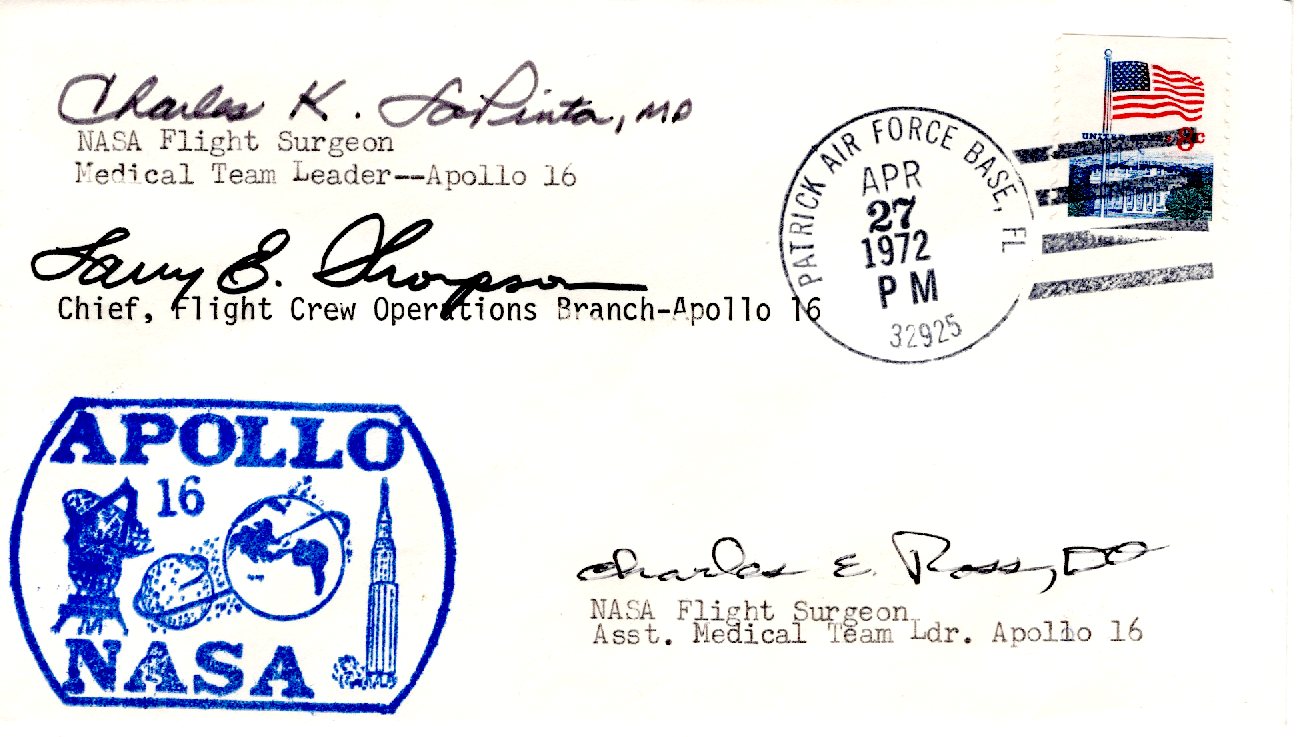 Charles K. LaPinta, MD
NASA Flight Surgeon
Medical Team Leader--Apollo 16
Larry E. Thompson
Chief, Flight Crew Operations Branch-Apollo 16
PATRICK AIR FORCE BASE, FL
APR
27
1972
PM
32925
UNITED STATES 8c
APOLLO
16
NASA
Charles E. Ross, DO
NASA Flight Surgeon
Asst. Medical Team Ldr. Apollo 16